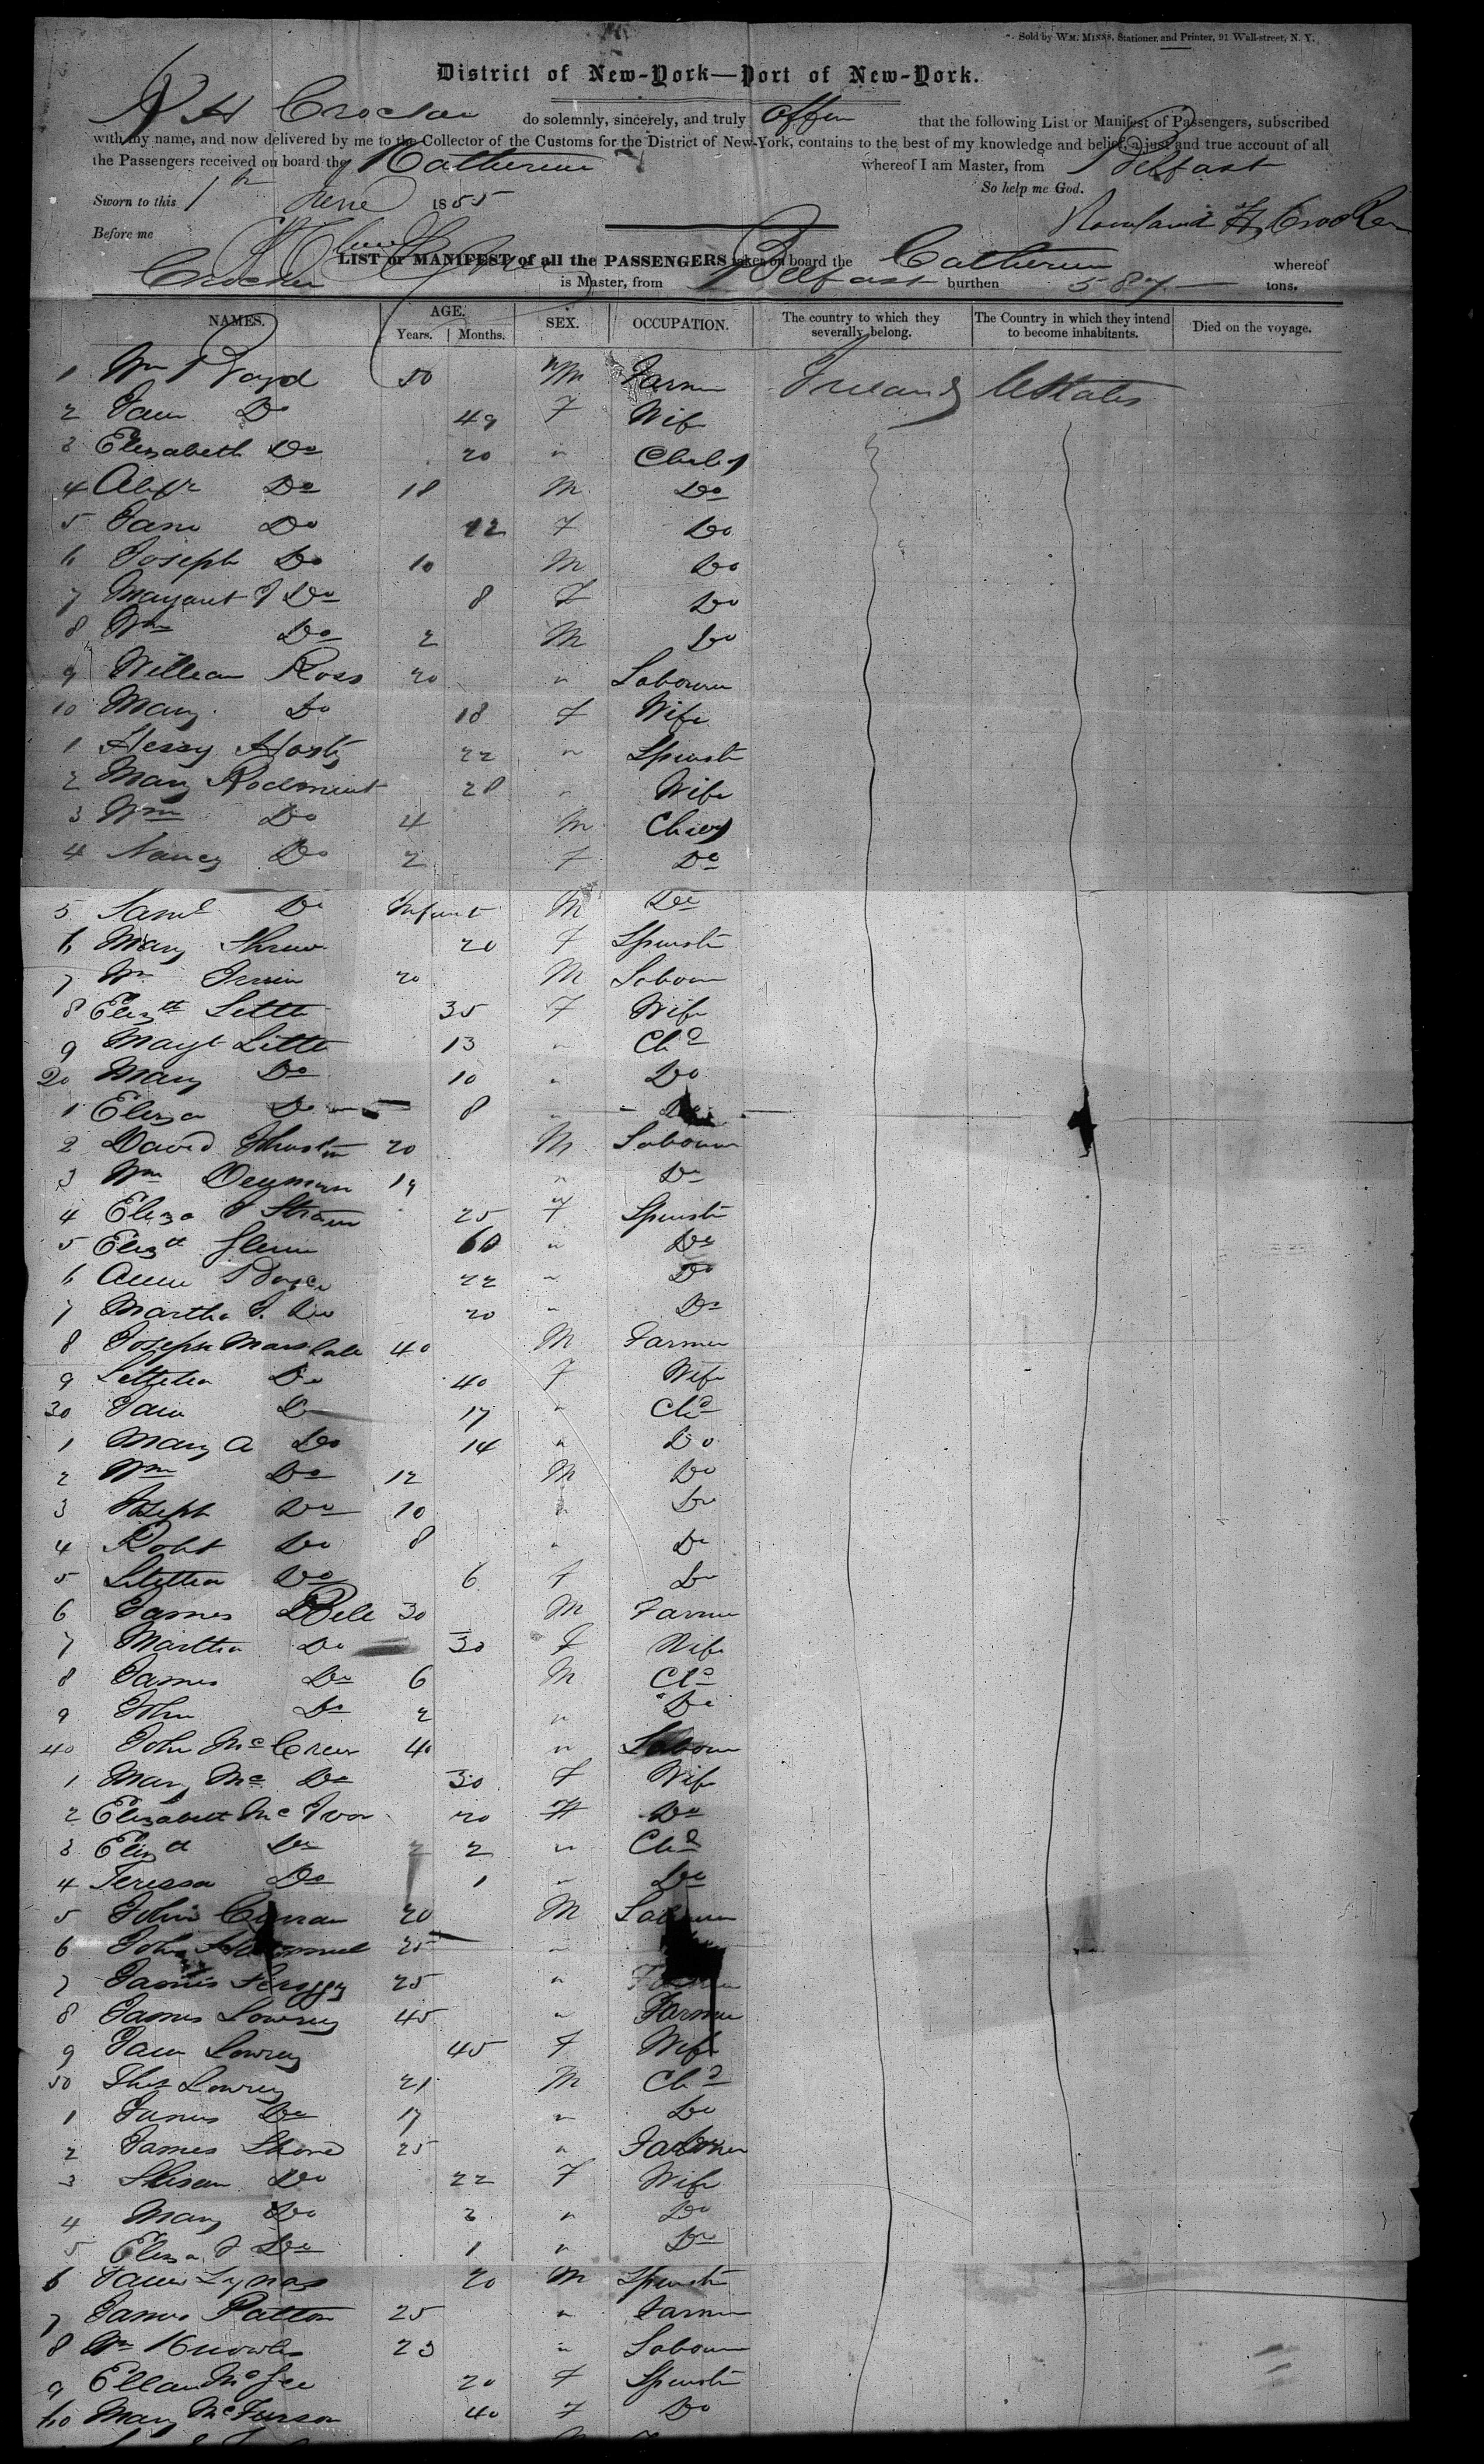 Sold by WM. MINNS, Stationer and Printer, 91 Wall-street, N. Y.
District of New-York—Port of New-York.
R H Crocker do solemnly, sincerely, and truly affirm that the following List or Manifest of Passengers, subscribed
with my name, and now delivered by me to the Collector of the Customs for the District of New-York, contains to the best of my knowledge and belief, a just and true account of all
the Passengers received on board the Katherine whereof I am Master, from Belfast
So help me God.
Sworn to this 1st June 1855
Rowland H Crocker
Before me
LIST or MANIFEST of all the PASSENGERS taken on board the Catherine whereof
Crocker is Master, from Belfast burthen 587 tons.
NAMES. AGE. Years. Months. SEX. OCCUPATION. The country to which they severally belong. The Country in which they intend to become inhabitants. Died on the voyage.
1 Wm Boyd 50 M Farmer Ireland UStates
2 Jane Do 49 F Wife
3 Elizabeth Do 20 " Child
4 Alexr Do 18 M Do
5 Jane Do 12 F Do
6 Joseph Do 10 M Do
7 Margaret J Do 8 F Do
8 Wm Do 2 M Do
9 William Ross 20 " Labourer
10 Mary Do 18 F Wife
1 22 " Spinster
2 Mary 28 " Wife
3 Wm Do 4 M Child
4 Nancy Do 2 F Do
5 Saml Do Infant M Do
6 Mary 20 F Spinster
7 Wm Irwin 20 M Labour
8 Elizth Little 35 F Wife
9 Margt Little 13 " Chd
20 Mary Do 10 " Do
1 Eliza Do 8 " Do
2 David Johnston 20 M Labourer
3 Wm 19 " Do
4 Eliza J 25 F Spinster
5 Elizth Glenn 60 " Do
6 Anne Boyce 22 " Do
7 Martha J. Do 20 " Do
8 Joseph Marshall 40 M Farmer
9 Letitia Do 40 F Wife
30 Jane Do 17 " Chd
1 Mary A Do 14 " Do
2 Wm Do 12 M Do
3 Joseph Do 10 " Do
4 Robt Do 8 " Do
5 Letitia Do 6 F Do
6 James Bell 30 M Farmer
7 Martha Do 30 F Wife
8 James Do 6 M Chd
9 John Do 2 " Do
40 John McCrea 40 " Labour
1 Mary Mc Do 30 F Wife
2 Elizabeth McIvor 20 F Do
3 Elizth Do 2 " Chd
4 Teressa Do 1 " Do
5 John Curran 20 M Labourer
6 John 25 "
7 James 25 " Farmer
8 James Lowrey 45 " Farmer
9 Jane Lowrey 45 F Wife
50 Thos Lowrey 21 M Chd
1 James Do 17 " Do
2 James 25 " Farmer
3 Susan Do 22 F Wife
4 Mary Do 3 " Do
5 Eliza J Do 1 " Do
6 Jane Lynas 20 M Spinster
7 James Patton 25 " Farmer
8 Wm Knowles 23 " Labour
9 Ellan McGee 20 F Spinster
60 Mary 40 F Do